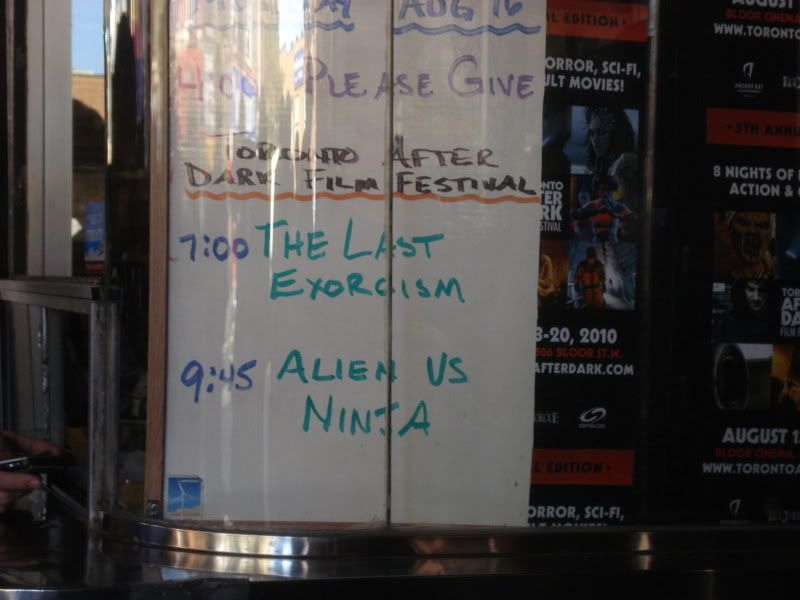 AUG 16
4:00 PLEASE GIVE
TORONTO AFTER
DARK FILM FESTIVAL
7:00 THE LAST
EXORCISM
9:45 ALIEN VS
NINJA
EDITION
ORROR, SCI-FI,
ULT MOVIES!
TORONTO
TER
RK
STIVAL
3-20, 2010
506 BLOOR ST.W.
AFTERDARK.COM
SPACE
L EDITION
ORROR, SCI-FI,
LT MOVIES!
AUGUST 1
BLOOR CINEMA
WWW.TORONTO
ANCHOR BAY
5TH ANNU
8 NIGHTS OF
ACTION &
TOR
AF
DA
FILM
AUGUST 1
BLOOR CINEMA,
WWW.TORONTOA